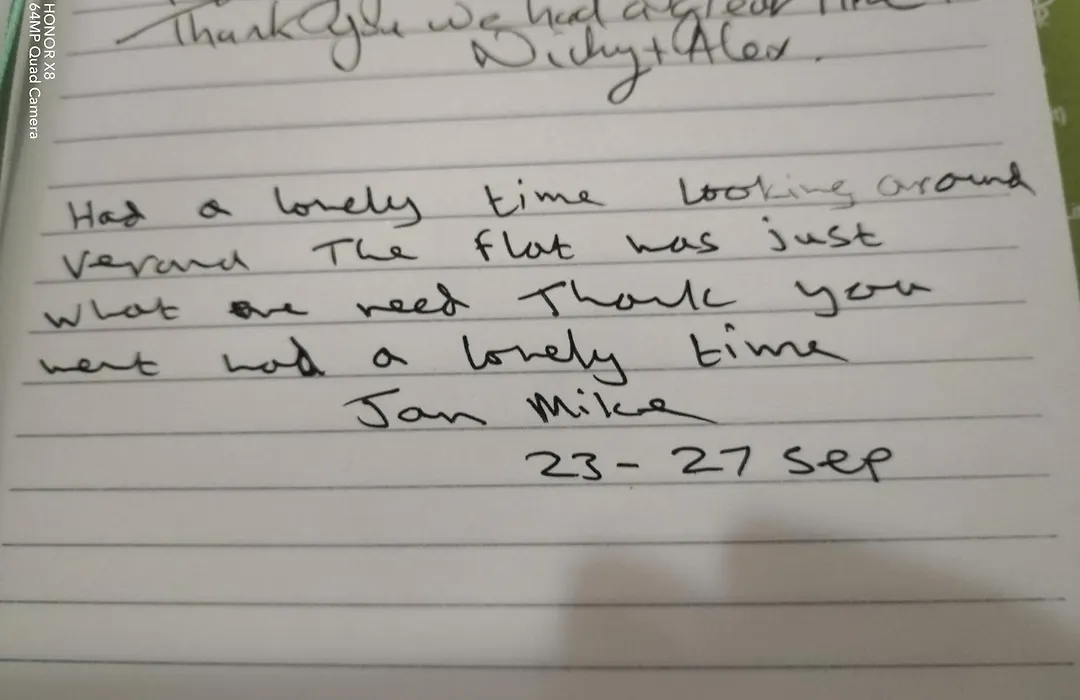 Thank you we had a great time
Nicky + Alex.
Had a lovely time looking around
Verand The flat was just
what we need Thank you
went had a lovely time
Jan Mike
23 - 27 Sep
HONOR X8
64MP Quad Camera